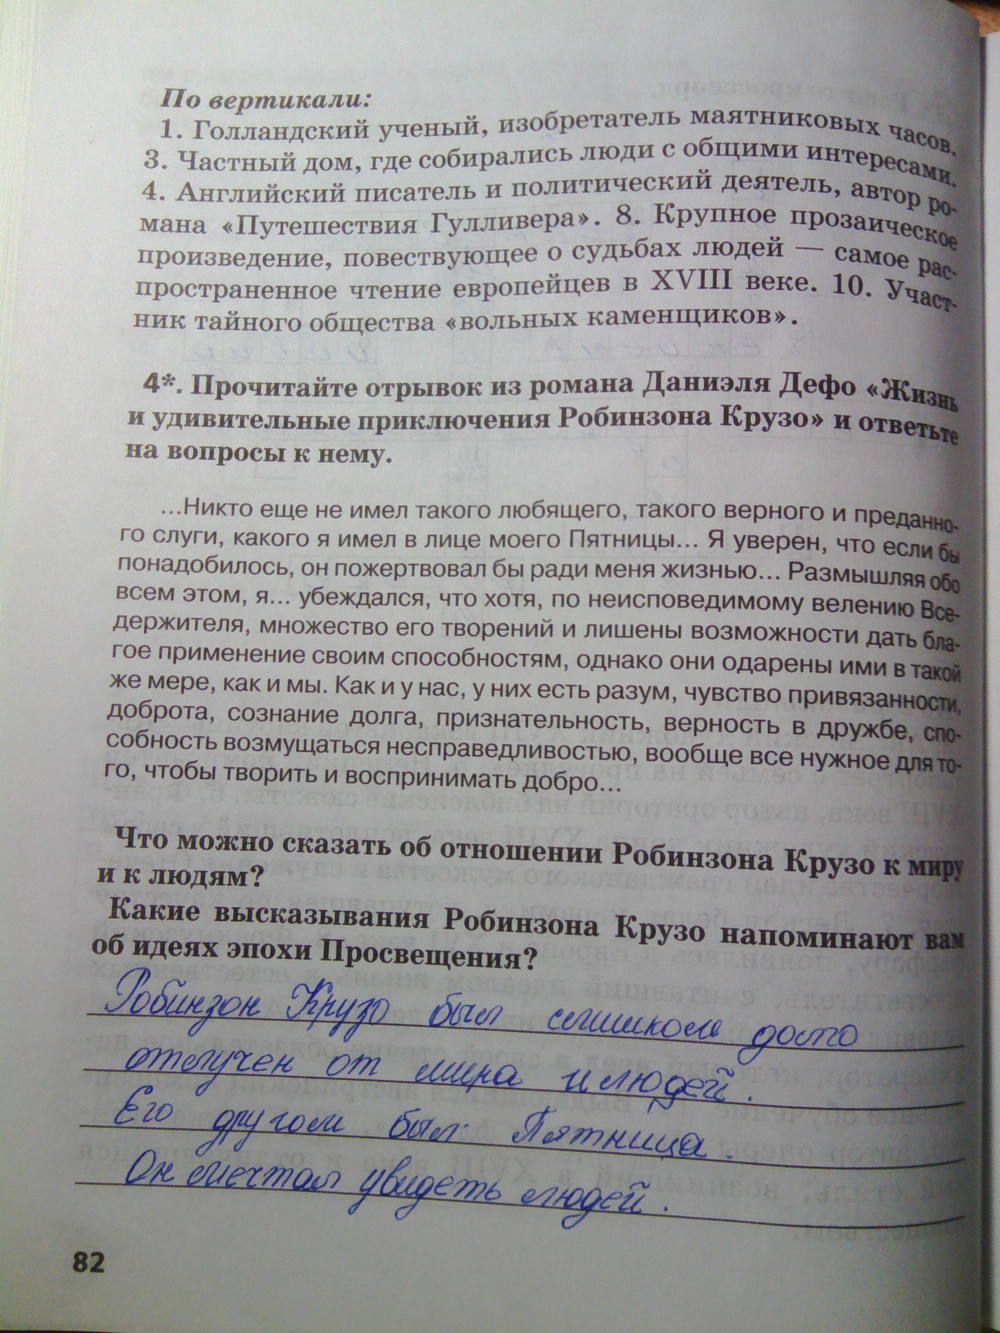 По вертикали:
1. Голландский ученый, изобретатель маятниковых часов.
3. Частный дом, где собирались люди с общими интересами.
4. Английский писатель и политический деятель, автор ро-
мана «Путешествия Гулливера». 8. Крупное прозаическое
произведение, повествующее о судьбах людей — самое рас-
пространенное чтение европейцев в XVIII веке. 10. Участ-
ник тайного общества «вольных каменщиков».
4*. Прочитайте отрывок из романа Даниэля Дефо «Жизнь
и удивительные приключения Робинзона Крузо» и ответьте
на вопросы к нему.
...Никто еще не имел такого любящего, такого верного и преданно-
го слуги, какого я имел в лице моего Пятницы... Я уверен, что если бы
понадобилось, он пожертвовал бы ради меня жизнью... Размышляя обо
всем этом, я... убеждался, что хотя, по неисповедимому велению Все-
держителя, множество его творений и лишены возможности дать бла-
гое применение своим способностям, однако они одарены ими в такой
же мере, как и мы. Как и у нас, у них есть разум, чувство привязанности,
доброта, сознание долга, признательность, верность в дружбе, спо-
собность возмущаться несправедливостью, вообще все нужное для то-
го, чтобы творить и воспринимать добро...
Что можно сказать об отношении Робинзона Крузо к миру
и к людям?
Какие высказывания Робинзона Крузо напоминают вам
об идеях эпохи Просвещения?
Робинзон Крузо был слишком долго
отлучен от мира и людей.
Его другом был Пятница.
Он мечтал увидеть людей.
82